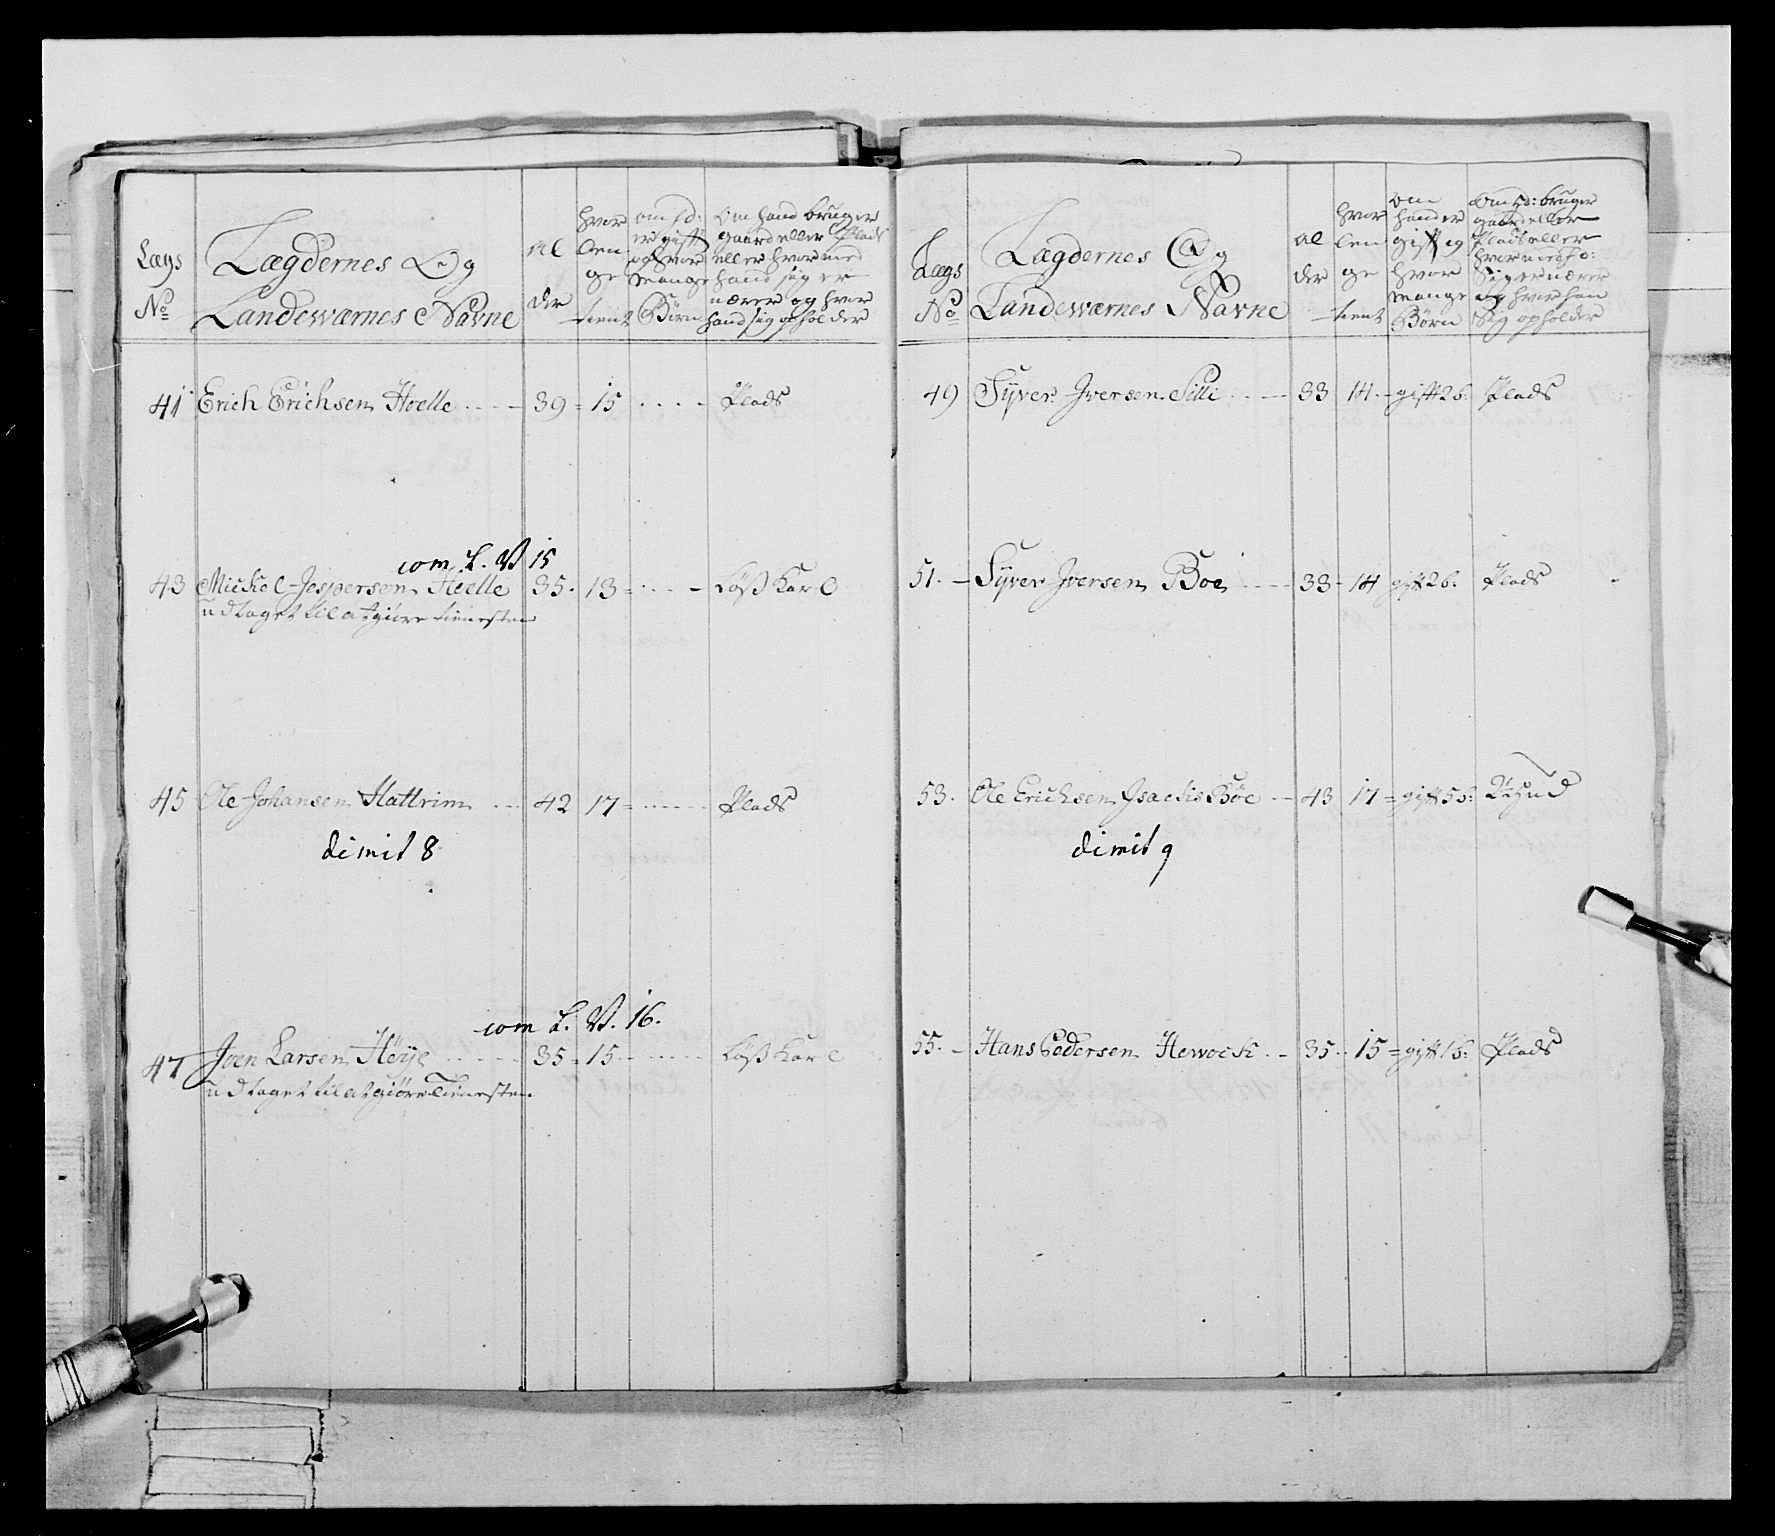 Lægs
No
Lægdernes Og
Landewærnes Navne
Al
der
hvor
len
ge
tient
om hd:
er gift
og hvor
mange
Börn
Om hand bruger
gaard eller Plads
eller hvor med
hand sig er
nærer og hvor
hand sig opholder
41 Erich Erichsen Hoelle 39 = 15 Plads
com L. V 15
43 Mickel Jespersen Hoelle 35. 13 = Löß Karl
udtaget til at giöre tienesten
45 Ole Johansen Hattrim 42 17 = Plads
dimit 8
com L. V. 16.
47 Joen Larsen Höye 35 = 15 Löß Karl
udtaget til at giöre Tienesten.
Lægs
No
Lægdernes Og
Landewærnes Navne
Al
der
hvor
len
ge
tient
om
hand er
gift og
hvor
mange
Börn
Om hd: bruger
gaard eller
Plads eller
hvor med h:
Sig er nærer
og hvor han
Sig opholder
49 Syver Iversen Silli 33 14 - gift 2b. Plads
51. - Syver Iversen Boe 33 - 14 gift 2b. Plads
53. Ole Erichsen Isachsböe 43 17 = gift 5b:
dimit 9
55. - Hans Pedersen Hewock 35. 15 = gift 1b: Plads